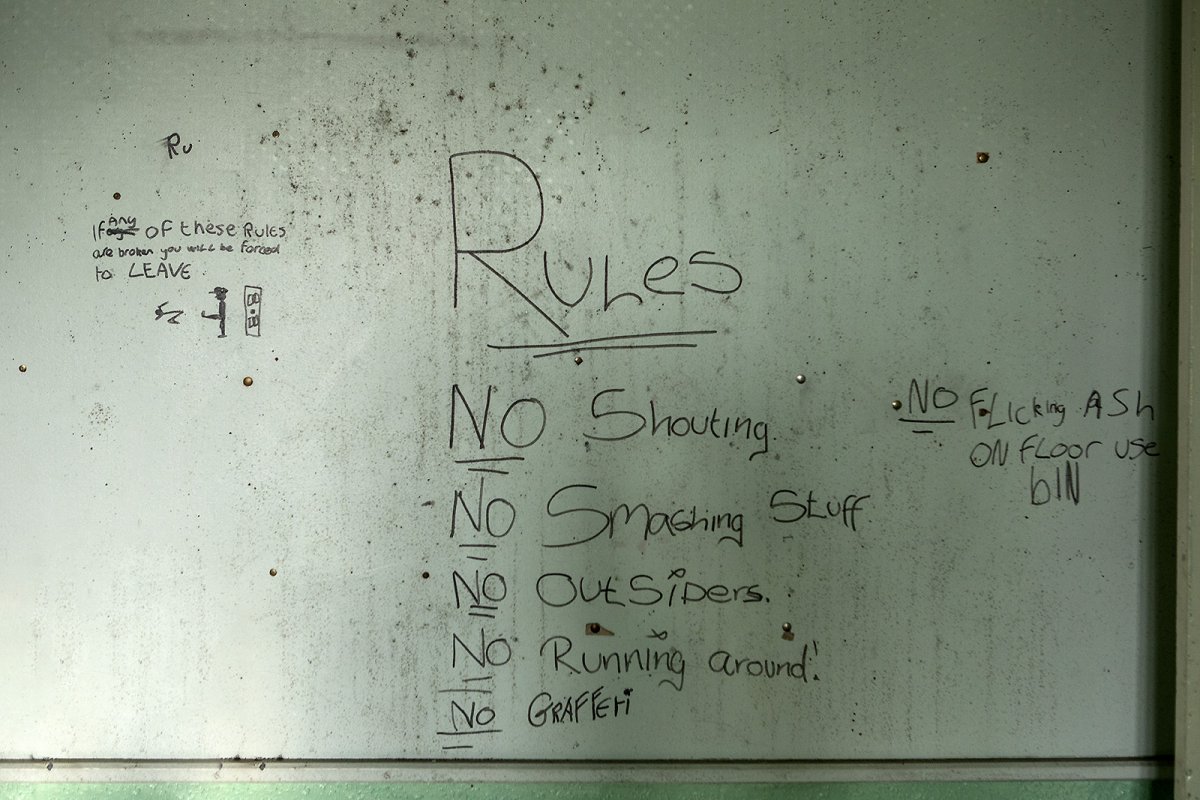 Ru
If Any of these Rules
are broken you will be forced
to LEAVE
Rules
NO Shouting
NO Smashing Stuff
NO OutSiDers.
NO Running around!
No GRAFFEti
NO FLicking ASh
ON FLoor use
bIN